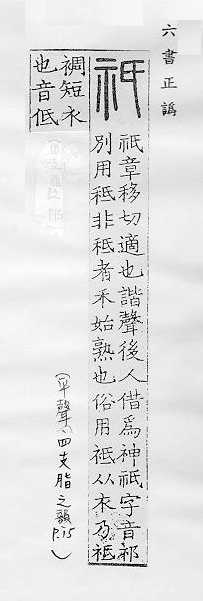 六書正譌
祇
祇章移切適也諧聲後人借爲神祇字音祁
別用秪非秪者禾始熟也俗用袛从衣乃袛
裯短衣
也音低
(平聲、四支脂之韻 P.15)